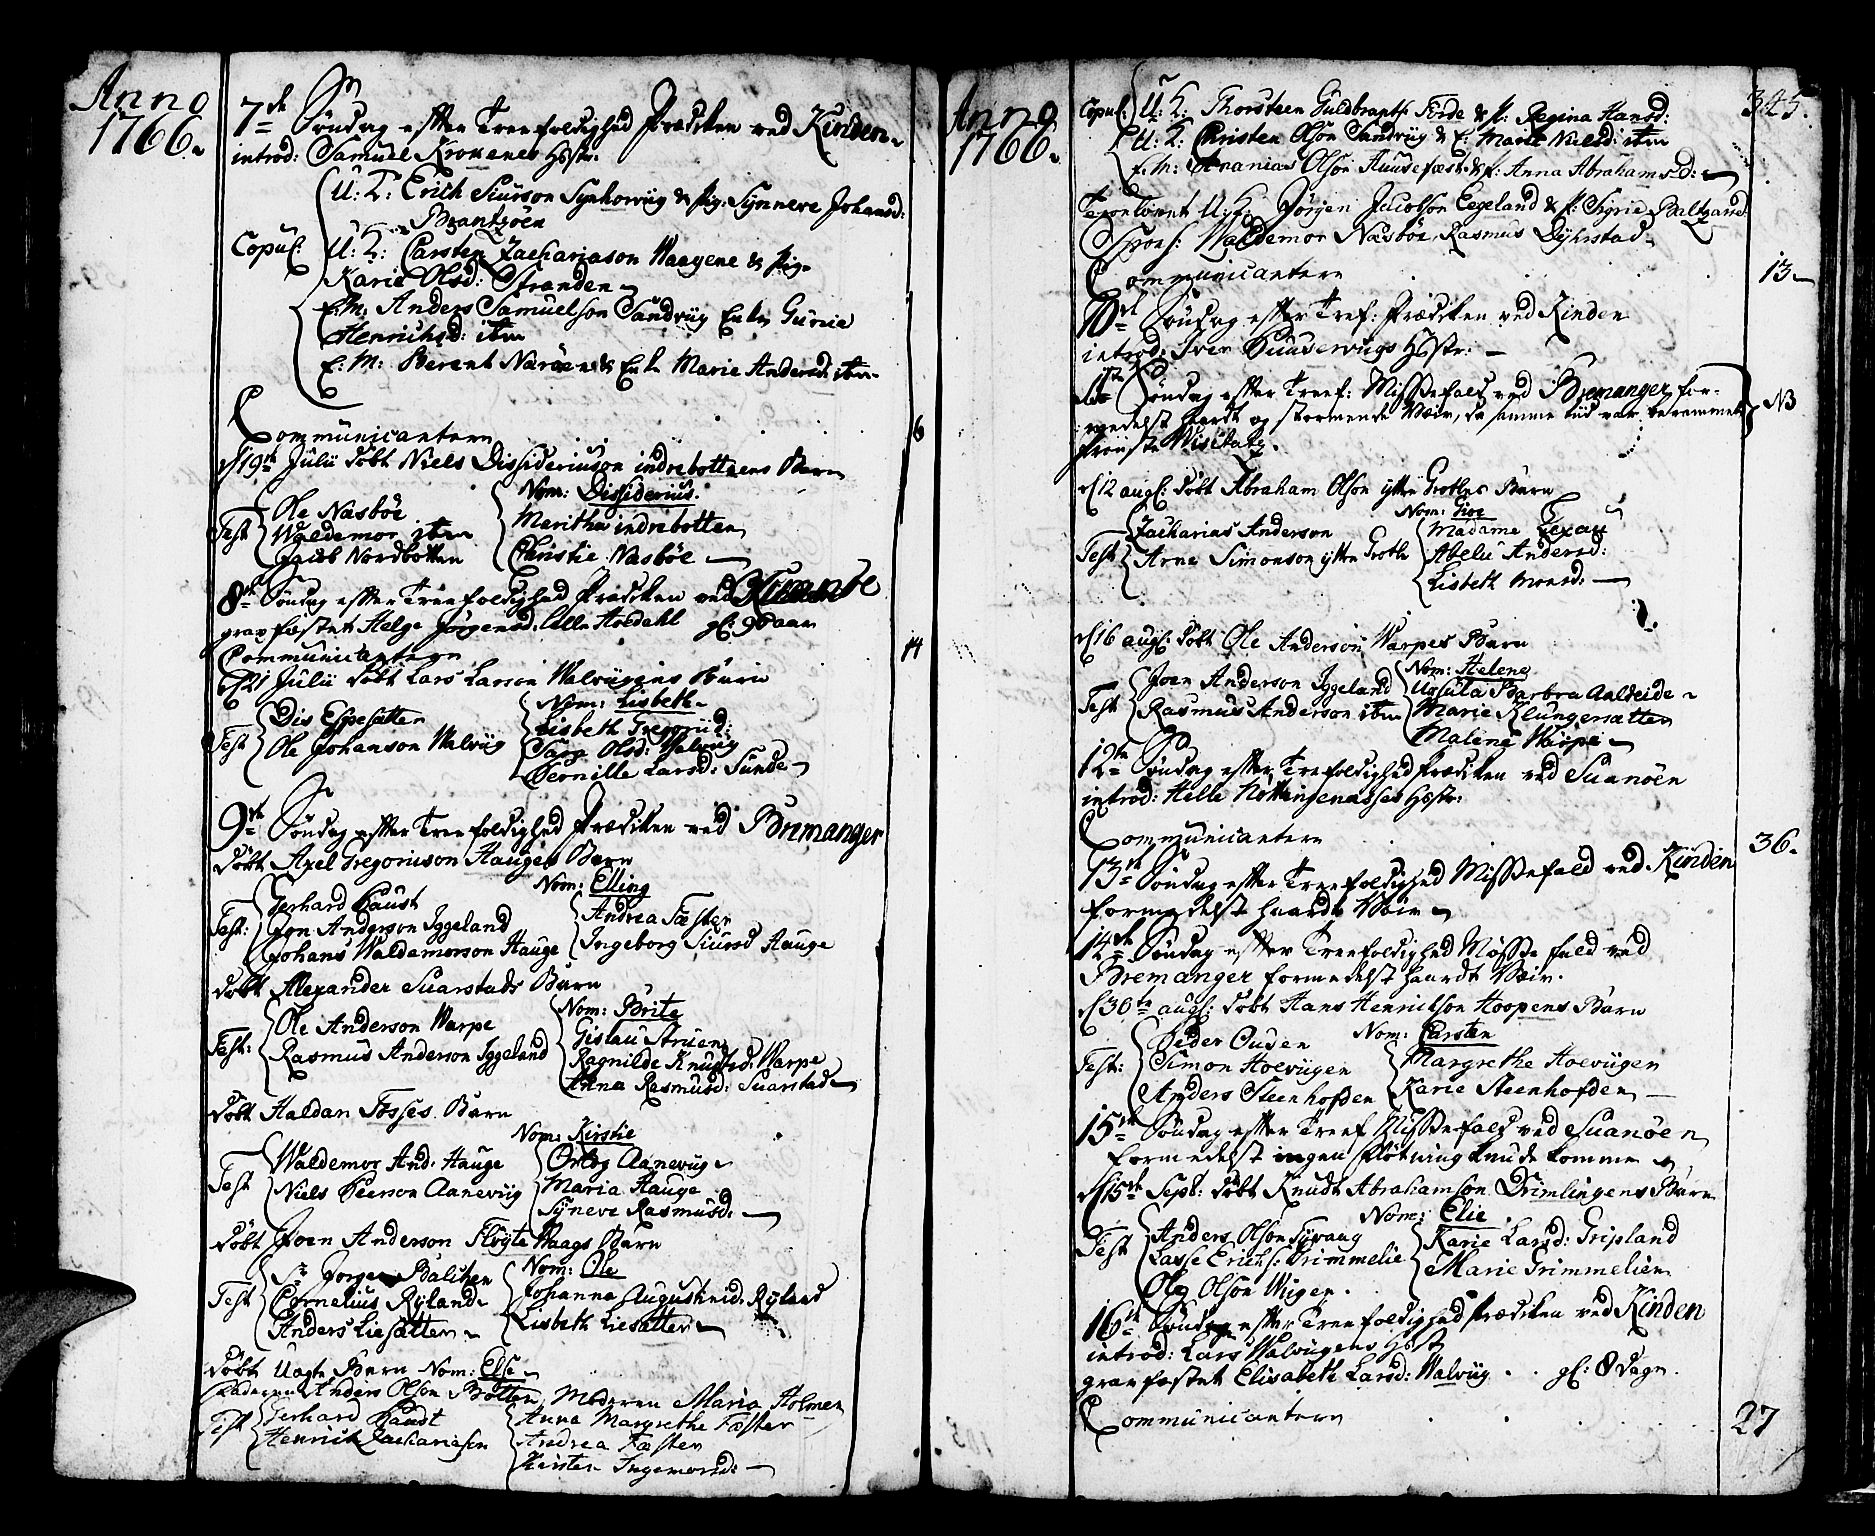 Anno
1766.
7de Søndag efter Treefoldighed Prædiken ved Kinden
introd: Samuel Kromenes Hstr:
Copul:
U: K: Erich Siurson Synhowiig & Pig: Synneve Johansd:
Brantzöen
U: K: Carsten Zachariason Waagene & Pig:
Karie Olsd: Stranden
E: M: Anders Samuelson Sandviig Enke Gurie
Henrichsd: item
E: M: Berent Naröen & Enke Marie Andersd: item
Communicantere 6
d 19de Julii döbt Niels Dissideriuson indrebottnens Barn
Nom: Dissiderius.
Test
Ole Nasböe
Waldemor item
Jacob Nordbotten
Maritha indrebotten
Christie Nasböe
8de Søndag efter Treefoldighed Prædiken ved
gravfæstet Helge Jørgensd: gl: 96 aar
Communicantere 14
d 21 Julii döbt Lars Larson Walviigens Barn
Nom: Lisbeth
Test
Dis Espesætter
Ole Johanson Walviig
Lisbeth
Sara Olsd: Walviig
Pernille Larsd: Sunde
9de Søndag efter Treefoldighed Prædiken ved Bremanger
döbt Axel Gregoriuson Hauges Barn
Nom: Elling
Test:
Gerhard Gaust
Jon Anderson Iggeland
Johans Waldemorson Hauge
Andrea Fæster
Ingeborg Siursd Hauge
döbt Alexander Suarstads Barn
Nom: Brite
Test:
Ole Anderson Warpe
Rasmus Anderson Iggeland
Gislau Struen
Ragnilde Knudsd: Warpe
Anna Rasmusd: Suarstad
döbt Haldan Fosses Barn
Nom: Kirstie
Test
Waldemor And: Hauge
Niels Peerson Aaneviig
Ortog Aaneviig
Maria Hauge
Syneve Rasmusd:
döbt Joen Anderson Flöyte Waags Barn
Nom: Ole
Test
Sr Jørgen Balchen
Cornelius Ryland
Anders Liesætter
Johanna Augustinid: Ryland
Lisbeth Liesætter
döbt Uægte Barn Nom: Else
Faderen Anders Olson Botten, Moderen Maria Holmen
Test
Gerhard Gaudt
Henrich Zachariason
Anne Margrethe Fæster
Andrea Fæster
Kirsten Ingemorsd:
Anno
1766.
345.
Copul:
U: K: Thorsteen Guldbrants: Förde & P: Regina Hansd:
U: K: Christen Olson Sandviig & E: Marit Nielsd: item
E: M: Ananias Olson Huusefæst & P: Anna Abrahamsd:
U: K: Jörgen Jacobson Eegeland & P: Sigrie Baltzard:
Spons: Waldemor Næsböe, Rasmus Dyhrstad
Communicantere 13
10de Søndag efter Tref: Prædiken ved Kinden
introd: Iver Huuseviigs Hstr:
11te Søndag efter Treef: Missefald ved Bremanger for-
medelst haardt og stormende Wæir, da samme tiid var berammet NB
Provste Visitatz.
d 12 augl: döbt Abraham Olson ytter Grotles Barn
Nom: Sive
Test
Zacharias Anderson
Arne Simonson ytter Grotle
Madame Lexau
Abelu Andersd:
Lisbeth Monsd:
d 16 augl: döbt Ole Anderson Warpes Barn
Nom: Helene
Test
Joen Anderson Iggeland
Rasmus Anderson item
Ursula Barbra Aalheide
Marie Klungersætter
Malene Warpe
12te Søndag efter Treefoldighed Prædiken ved Suanöen
introd: Helle Nottingenæsses Hstr:
Communicantere 36.
13de Søndag efter Treefoldighed Missefald ved Kinden
formedelst haardt Wæir
14de Søndag efter Treefoldighed Møssefald ved
Bremanger formedelst haardt Wæir.
d 30te augl: döbt Hans Henrichson Hoopens Barn
Nom: Carsten
Test:
Peder Ouden
Simon Hoeviigen
Anders Steenhofden
Margrethe Hoeviigen
Karie Steenhofden
15de Søndag efter Treef Missefald ved Suanöen
formedelst ingen fløtning kunde komme
d 15de Sept: döbt Knudt Abrahamson Drimlingens Barn
Nom: Elie
Test
Anders Olson Tyvaag
Lasse Erichs: Grimmelie
Ole Olson Wiigen.
Karie Larsd: Gripland
Marie Grimmelien
16de Søndag efter Treefoldighed Prædiken ved Kinden
introd: Lars Walviigens Hstr
gravfæstet Elisabeth Larsd: Walviig . . gl: 8 Dage
Communicantere 27